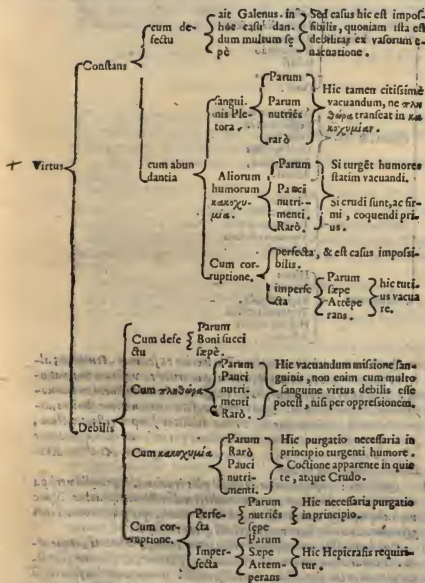 cum de-
fectu
ait Galenus. in
hõc casu dan-
dum multum sę
pè
Sed casus hic est impos-
sibilis, quoniam ista est
debilitas ex vasorum e-
uacuatione.
Constans
cum abun
dantia
sangui
nis Ple-
tora.
Parum
Parum
nutriẽs
rarò
Hic tamen citissimè
vacuandum, ne πλη
θώρα transeat in κα
κοχυμίαν.
Aliorum
humorum
κακοχυ-
μία.
Parum
Pauci
nutri-
menti.
Rarò.
Si turgẽt humores
statim vacuandi.
Si crudi sunt, ac fir-
mi, coquendi pri-
us.
Cum cor-
ruptione.
perfecta, & est casus impossi-
bilis.
imperfe
cta
Parum
sæpe
Attẽpe
rans.
hic tuti-
us vacua
re.
+ Virtus
Debilis
Cum defe
ctu
Parum
Boni succi
sæpè.
Cum πληθώρα
Parum
Pauci
nutri-
menti
Rarò.
Hic vacuandum missione san-
guinis, non enim cum multo
sanguine virtus debilis esse
potest, nisi per oppressionem.
Cum κακοχυμία
Parum
Rarò
Pauci
nutri-
menti.
Hic purgatio necessaria in
principio turgenti humore.
Coctione apparente in quie
te, atque Crudo.
Cum cor-
ruptione.
Perfe-
cta
Parum
nutriẽs
sępe
Hic necessaria purgatio
in principio.
Imper-
fecta
Parum
Sæpe
Attem-
perans
Hic Hepicrasis requiri
tur.